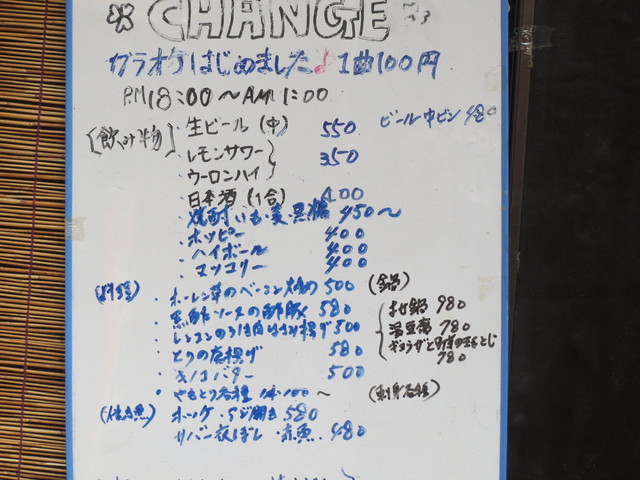 CHANGE
カラオケはじめました♪1曲100円
P.M18:00〜AM1:00
[飲み物]
・生ビール(中) 550 ビール中ビン 480
・レモンサワー
・ウーロンハイ} 350
・日本酒(1合) 400
・焼酎 いも・麦・黒糖 450〜
・ホッピー 400
・ハイボール 400
・マッコリー 400
(料理)
・ホーレン草のベーコン炒め 500 (鍋)
・黒酢ソースの酢豚 580 よせ鍋 980
・レンコンのはさみ揚げ 500 湯豆腐 780
・とりの唐揚げ 580 ギョウザと野菜の玉子とじ 780
・キノコバター 500
・やきとり各種 1本100〜 (刺身各種)
(焼き魚) ・ホッケ・アジ開き 580
サバ一夜ぼし・赤魚 480